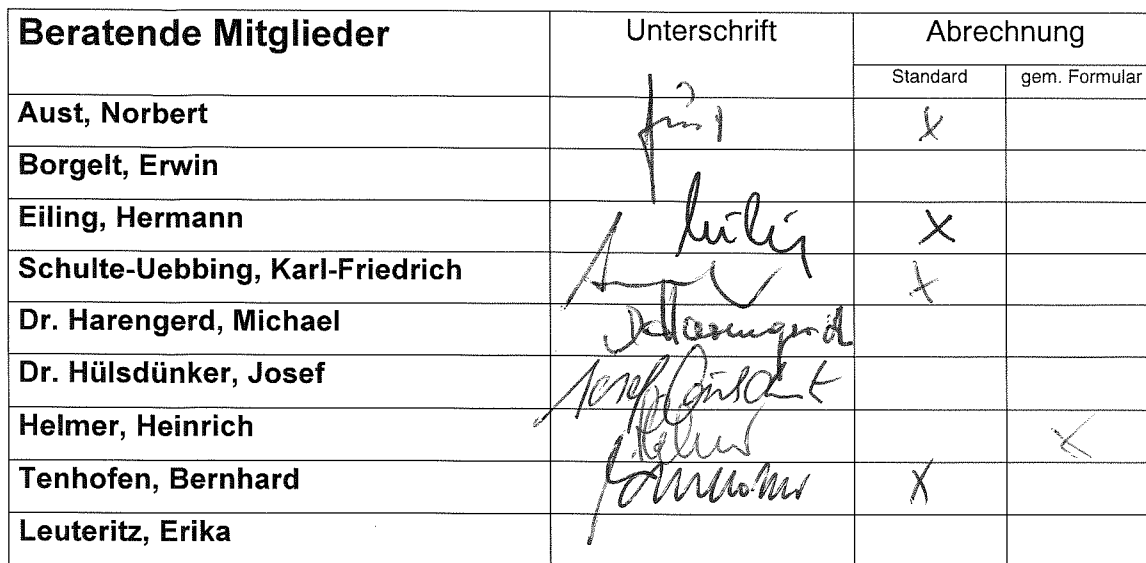 Beratende Mitglieder Unterschrift Abrechnung
Standard gem. Formular
Aust, Norbert X
Borgelt, Erwin
Eiling, Hermann X
Schulte-Uebbing, Karl-Friedrich X
Dr. Harengerd, Michael
Dr. Hülsdünker, Josef
Helmer, Heinrich X
Tenhofen, Bernhard X
Leuteritz, Erika